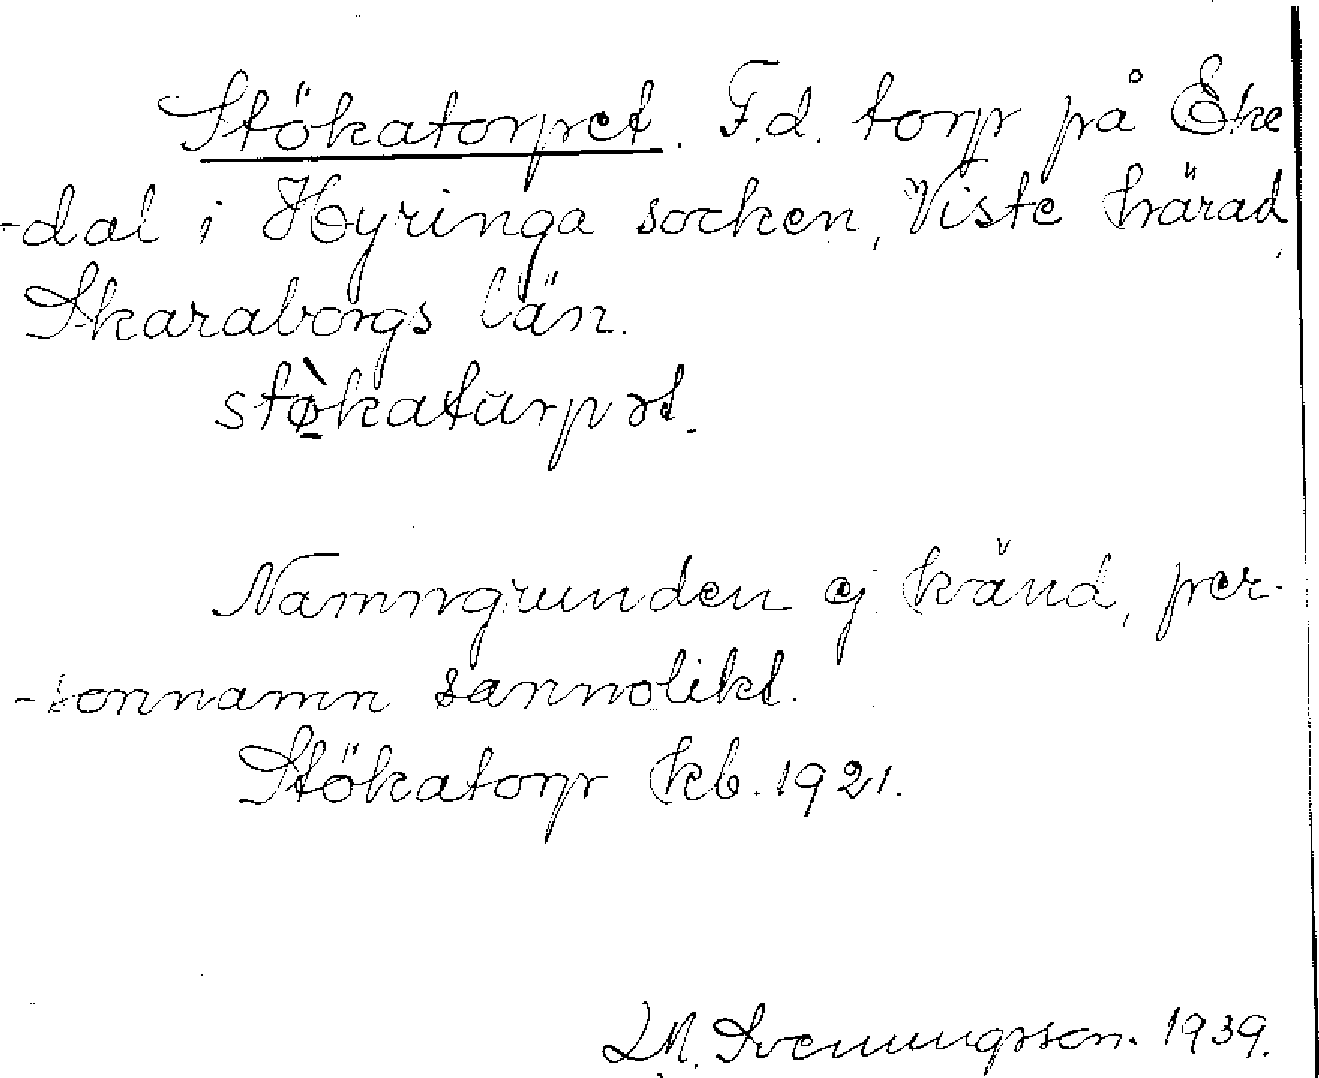 Stökatorpet. F.d. torp på Eke
-dal i Hyringa socken, Viste härad,
Skaraborgs län.
stø̀katurpət.
Namngrunden ej känd, per-
-sonnamn sannolikt.
Stökatorp kb. 1921.
Svenungsson. 1939.